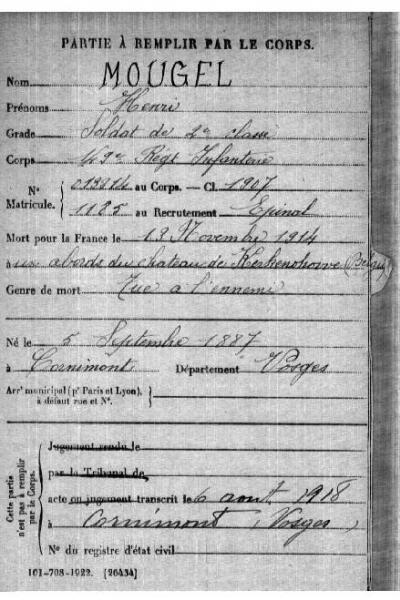 PARTIE À REMPLIR PAR LE CORPS.
Nom MOUGEL
Prénoms Henri
Grade Soldat de 2e classe
Corps 149e Régt Infanterie
N° Matricule. { 013314 au Corps. — Cl. 1907
1185 au Recrutement Epinal
Mort pour la France le 13 Novembre 1914
à ux abords du chateau de (Belgique)
Genre de mort Tué à l'ennemi
Né le 5 Septembre 1887
à Cornimont Département Vosges
Arrt municipal (pr Paris et Lyon), à défaut rue et N°. }
Cette partie n'est pas à remplir par le Corps.
Jugement rendu le
par le Tribunal de
acte ou jugement transcrit le 6 aout 1918
à Cornimont (Vosges)
N° du registre d'état civil
101-708-1922. [26434]